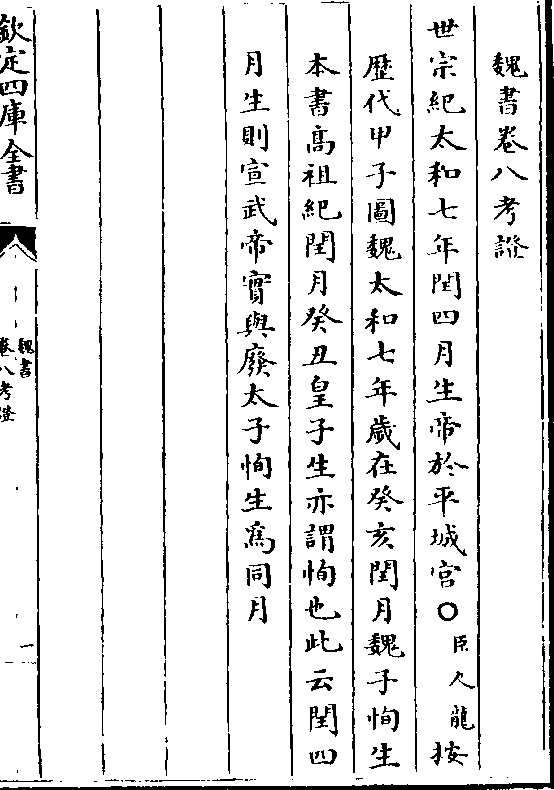 魏書卷八考證
世宗紀太和七年閏四月生帝於平城宮○臣人龍按
歷代甲子圖魏太和七年歲在癸亥閏月魏子恂生
本書高祖紀閏月癸丑皇子生亦謂恂也此云閏四
月生則宣武帝實與廢太子恂生爲同月
欽定四庫全書
魏書
卷八考證
一